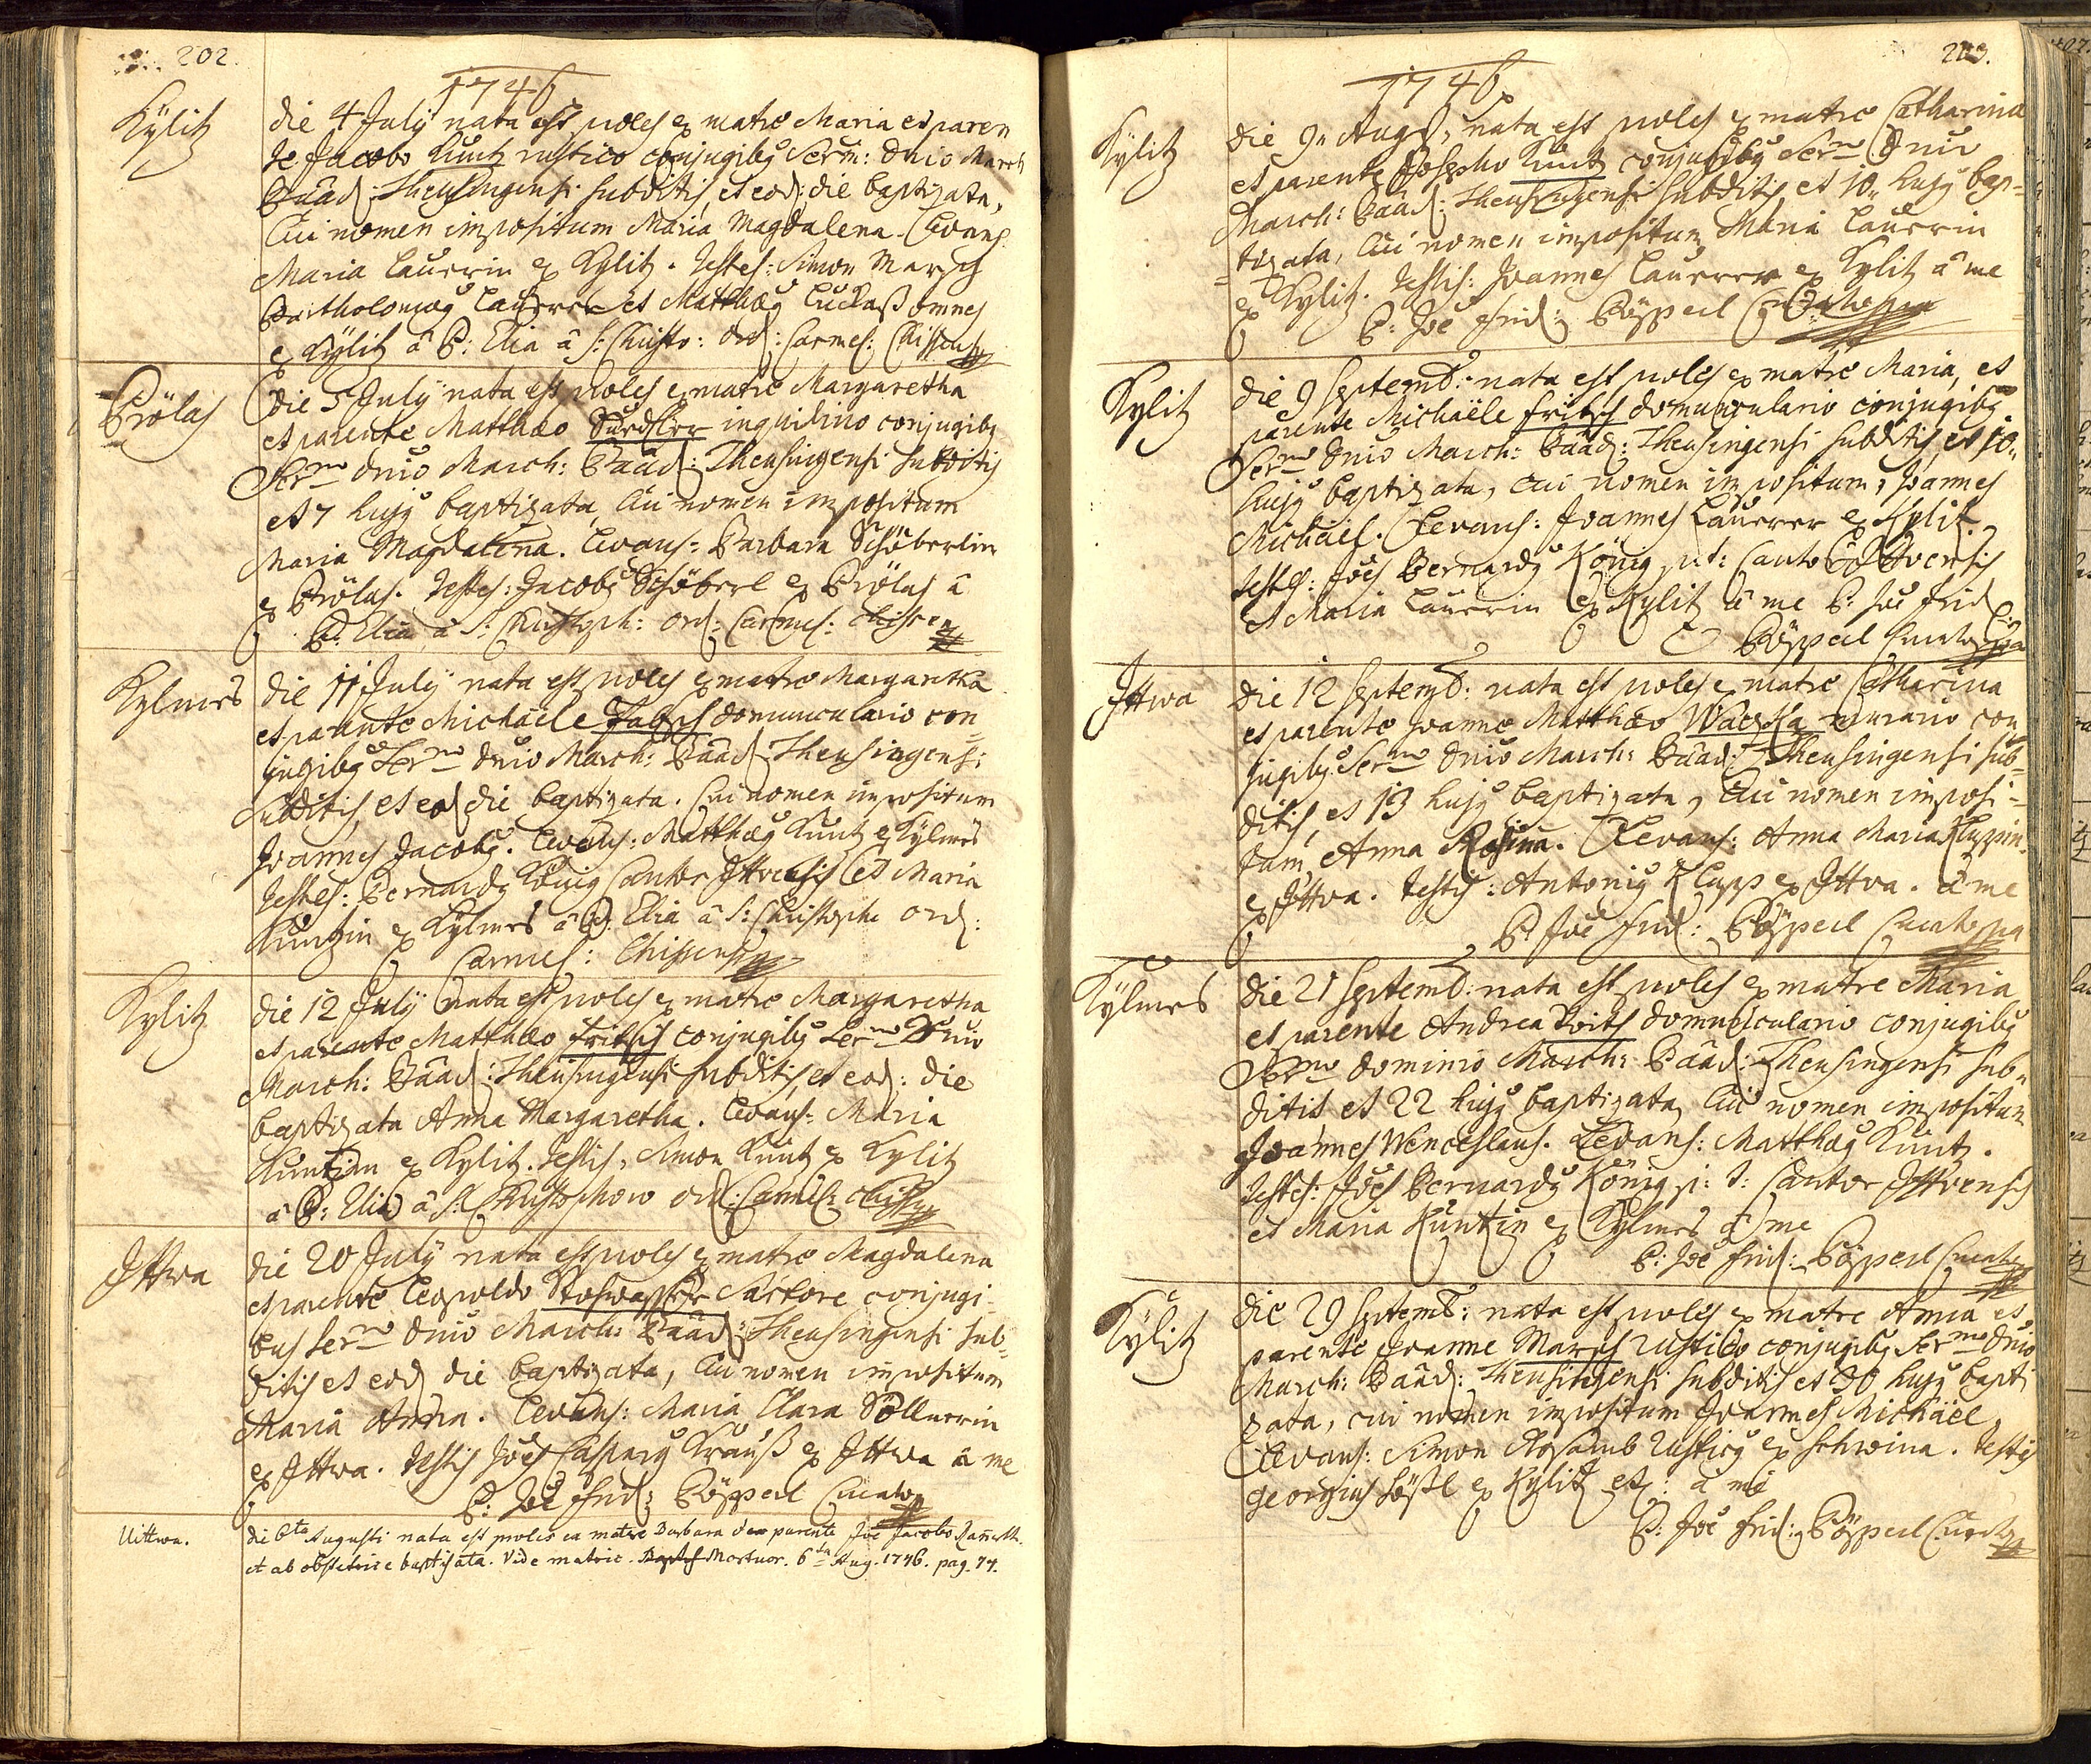 202.
1746
Kÿlitz
die 4 Julÿ nata est proles ex matre Maria et paren
te Jacobo Kuntz rustico conjugibg Serm: Dnio March
Bâad: Theusingensi subditis, et eod: die baptizata,
Cui nomen impositum Maria Magdalena. Levans
Maria Lauerin ex Kylitz. Testes: Simon Marsch
Bartholomæg Lauerer et Matthæg Luckass omnes
ex Kÿlitz â P: Elia â S: Christo: Ord: Carmel: Chissensi
Prölas
Die 5 Julÿ nata est proles ex matre Margaretha
et parente Matthæo inquilino conjugibg
Sermo Dnio March: Bâad: Theusingensi subditis
et 7 hujg baptizata, Cui nomen impositum
Maria Magdalena. Levans: Barbara Schöberlin
ex Prölas. Testes: Jacobg Schöberl ex Prölas â
P: Elia â S: Christoph: Ord: Carmel: Chissen
Kylmes
die 11 Julÿ nata est proles ex matre Margaretha
et parente Michaële domunculario con=
jugibg Sermo Dnio March: Bâad: Theusingensi
subditis, et eod die baptizata. Cui nomen impositum
Joannes Jacobg. Levans: Matthæg Kuntz ex Kÿlmes
Testes: Bernardg König Cantor Ittvensis et Maria
Kuntzin ex Kÿlmes â P. Elia â S: Christopho Ord:
Carmel: Chissensi
Kylitz
die 12 Julÿ nata est proles ex matre Margaretha
et parente Matthæo Fritsch conjugibg Sermo Dnio
March: Bâad: Theusingensi subditis, et eod: die
baptizata Anna Margaretha. Levans: Maria
Kuntzin ex Kylitz. Testis, Simon Kuntz ex Kylitz
â P: Elia â S: Christophoro Ord: Carmel: Chiss
Ittwa
die 20 Julÿ nata est proles ex matre Magdalena
et parente Leopoldo Stohwasser Sartore conjugi=
bus Sermo Dnio March: Bâad: Theusingensi sub=
ditis et eod die baptizata, Cui nomen impositum
Maria Anna. Levans: Maria Clara Söllnerin
ex Ittwa. Testis Joës Casparg Krauß ex Ittwa â me
P: Joë Frid: Pöpperl Curato
Uittwa.
die 6ta Augusti nata est proles ex matre Barbara parente Joë Jacobo
et ab obstetrice baptizata. Vide matric. Mortuor. 6ta Aug. 1746. pag. 74.
203.
1746
Kylitz
die 9" Augs, nata est proles ex matre Catharina
et parente Josepho Kuntz conjugibg Sermo Dnio
March: Bâad: Theusingensi subditis et 10" hujg bap=
=tizata, Cui nomen impositum Maria Lauerin
ex Kylitz. Testis: Joannes Lauerer ex Kylitz â me
P: Joë Frid: Pöpperl
Kylitz
die 9 Septemb: nata est proles ex matre Maria, et
parente Michaële Fritsch domunculario conjugibg
Sermo Dnio March: Bâad: Theusingensi subditis, et 10"
hujg baptizata, cui nomen impositum, Joannes
Michaël. Levans: Joannes Lauerer ex Kylitz
Testes: Joës Bernardg König p.t: Cantor Ittvensis
et Maria Lauerin ex Kylitz â me P: Joë Frid
Pöpperl Curato
Ittwa
die 12 Septemb: nata est proles ex matre Catharina
et parente Joanne Matthæo murario con
jugibg Sermo Dnio March: Bâad: Theusingensi sub=
ditis, et 13 hujg baptizata, Cui nomen imposi=
tum Anna Rosina. Levans: Anna Maria Kluppin
ex Ittva. Testis: Antonig Klupp ex Ittva. â me
P: Joë Frid: Pöpperl Curato
Kÿlmes
die 21 Septemb: nata est proles ex matre Maria
et parente Andrea domunculario conjugibg
Sermo Dominio March: Bâad: Theusingensi sub=
ditis et 22 hujg baptizata, Cui nomen impositum
Joannes Wenceslaus. Levans: Matthæg Kuntz.
Testes: Joës Bernardg König p: t: Cantor Ittvensis
et Maria Kuntzin ex Kÿlmes â me
P: Joë Frid: Pöpperl Curato
Kÿlitz
die 29 Septemb: nata est proles ex matre Anna et
parente Joanne Marsch rustico conjugibg Sermo Dnio
March: Bâad: Theusingensi subditis et 30 hujg bapti
zata, cui nomen impositum Joannes Michäel,
Levans: Simon rusticg ex Schwina. Testis
Georgius ex Kÿlitz â me
P: Joë Frid: Pöpperl Curato